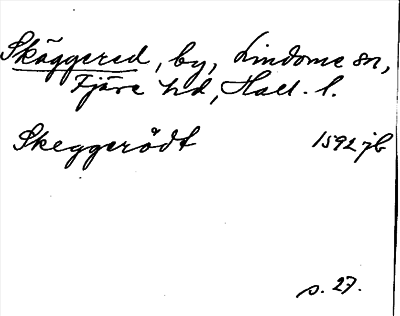 Skäggered, by, Lindome sn,
Fjäre hd, Hall. l.
Skeggerödt 1592 jb
s. 27.